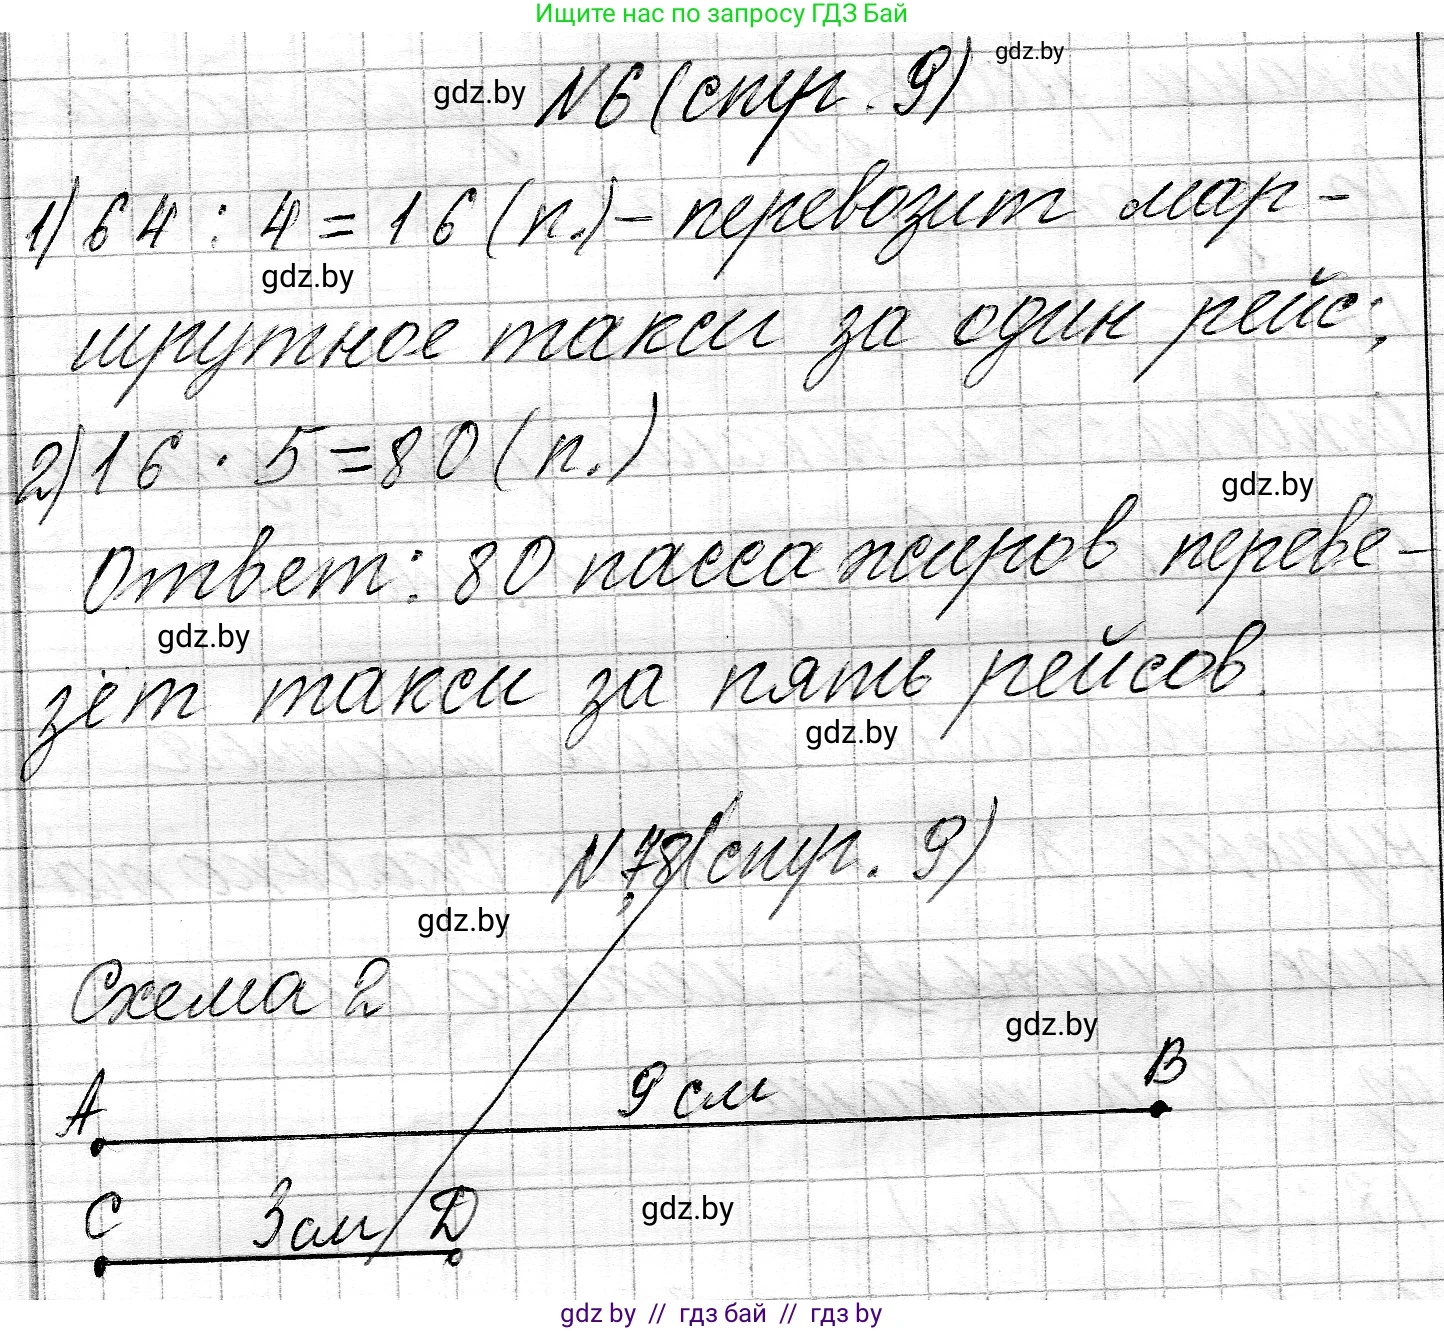 Ищите нас по запросу ГДЗ Бай
gdz.by
gdz.by
№6 (стр. 9)
1) 64 : 4 = 16 (п.) – перевозит мар-
gdz.by
шрутное такси за один рейс;
2) 16 · 5 = 80 (п.)
gdz.by
Ответ: 80 пассажиров переве-
gdz.by
зёт такси за пять рейсов.
gdz.by
№ 78 (стр. 9)
gdz.by
Схема 2
gdz.by
A 9 см B
C 3 см D
gdz.by
gdz by // гдз бай // гдз by